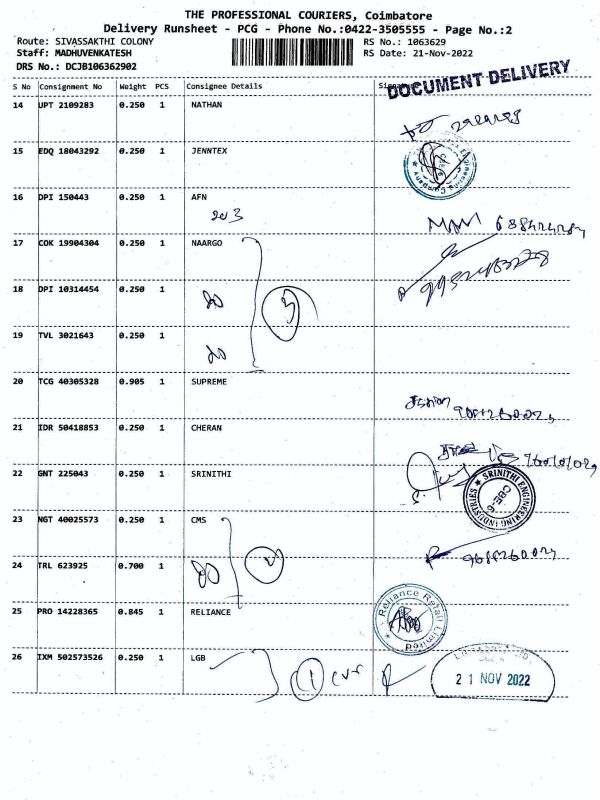 THE PROFESSIONAL COURIERS, Coimbatore
Delivery Runsheet - PCG - Phone No.:0422-3505555 - Page No.:2
Route: SIVASSAKTHI COLONY
RS No.: 1063629
Staff: MADHUVENKATESH
RS Date: 21-Nov-2022
DRS No.: DCJB106362902
DOCUMENT DELIVERY
S No Consignment No Weight PCS Consignee Details
14 UPT 2109283 0.250 1 NATHAN
15 EDQ 18043292 0.250 1 JENNTEX
16 DPI 150443 0.250 1 AFN
203
17 COK 19904304 0.250 1 NAARGO
18 DPI 10314454 0.250 1
3
19 TVL 3021643 0.250 1
20 TCG 40305328 0.905 1 SUPREME
21 IDR 50418853 0.250 1 CHERAN
22 GNT 225043 0.250 1 SRINITHI
SRINITHI ENGINEERING INDUSTRIES
CBE-6
23 NGT 40025573 0.250 1 CMS
24 TRL 623925 0.700 1
2
25 PRO 14228365 0.845 1 RELIANCE
Reliance Retail Limited
26 IXM 502573526 0.250 1 LGB
1
21 NOV 2022